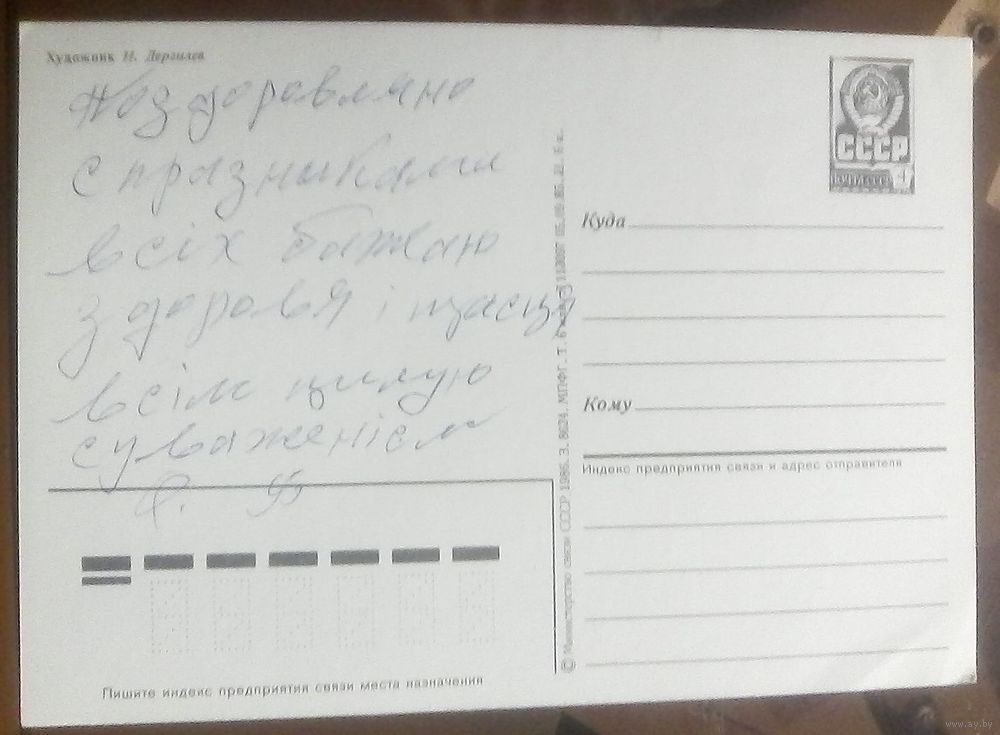 Художник И. Дергилев
Поздоровляню
с празниками
всіх бажаю
здоровя і щасця
всім цилую
с уваженієм
Р. 95
СССР
4
Куда
Кому
Индекс предприятия связи и адрес отправителя
© Министерство связи СССР 1986. З. 8624. МПФГ. Т.
Пишите индекс предприятия связи места назначения
www.ay.by